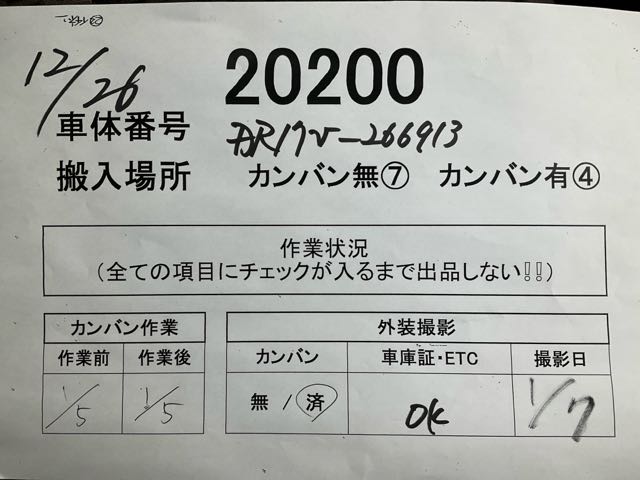 12/26
20200
車体番号 DR17V-266913
搬入場所 カンバン無⑦ カンバン有④
作業状況
(全ての項目にチェックが入るまで出品しない!!)
カンバン作業 外装撮影
作業前 作業後 カンバン 車庫証・ETC 撮影日
1/5 1/5 無 / 済 OK 1/7